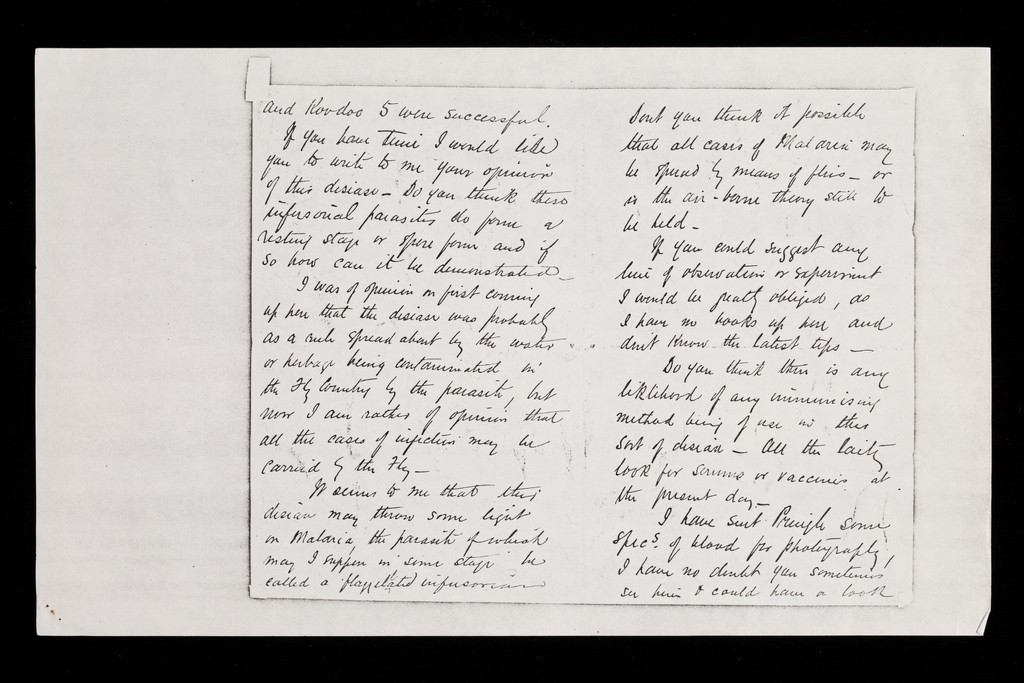 and Koodoo 5 were successful.
If you have time I would like
you to write to me your opinion
of this disease – Do you think these
infusorial parasites do form a
resting stage or spore form and if
so how can it be demonstrated –
I was of opinion on first coming
up here that the disease was probably
as a rule spread about by the water
or herbage being contaminated in
the Fly Country by the parasite, but
now I am rather of opinion that
all the cases of infection may be
carried by the Fly –
It seems to me that this
disease may throw some light
on Malaria, the parasite of which
may I suppose in some stage be
called a flagellated infusorian
Dont you think it possible
that all cases of Malaria may
be spread by means of flies – or
is the air-borne theory still to
be held –
If you could suggest any
line of observation or experiment
I would be greatly obliged, as
I have no books up here and
don't know the latest tips –
Do you think there is any
liklihood of any immunising
method being of use in this
sort of disease – All the laity
look for serums or vaccines at
the present day –
I have sent Pringle some
specs. of blood for photography,
I have no doubt you sometimes
see him & could have a look